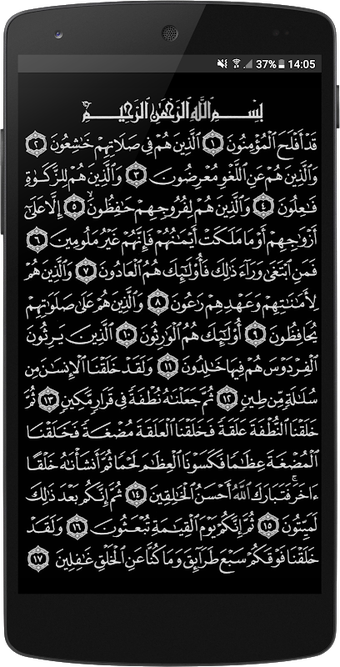 37% 14:05
بِسْمِ اللَّهِ الرَّحْمَٰنِ الرَّحِيمِ
قَدْ أَفْلَحَ الْمُؤْمِنُونَ ١ الَّذِينَ هُمْ فِي صَلَاتِهِمْ خَاشِعُونَ ٢
وَالَّذِينَ هُمْ عَنِ اللَّغْوِ مُعْرِضُونَ ٣ وَالَّذِينَ هُمْ لِلزَّكَوٰةِ
فَاعِلُونَ ٤ وَالَّذِينَ هُمْ لِفُرُوجِهِمْ حَافِظُونَ ٥ إِلَّا عَلَىٰ
أَزْوَاجِهِمْ أَوْ مَا مَلَكَتْ أَيْمَانُهُمْ فَإِنَّهُمْ غَيْرُ مَلُومِينَ ٦
فَمَنِ ابْتَغَىٰ وَرَاءَ ذَٰلِكَ فَأُولَٰئِكَ هُمُ الْعَادُونَ ٧ وَالَّذِينَ هُمْ
لِأَمَانَاتِهِمْ وَعَهْدِهِمْ رَاعُونَ ٨ وَالَّذِينَ هُمْ عَلَىٰ صَلَوَاتِهِمْ
يُحَافِظُونَ ٩ أُولَٰئِكَ هُمُ الْوَارِثُونَ ١٠ الَّذِينَ يَرِثُونَ
الْفِرْدَوْسَ هُمْ فِيهَا خَالِدُونَ ١١ وَلَقَدْ خَلَقْنَا الْإِنسَانَ مِن
سُلَالَةٍ مِّن طِينٍ ١٢ ثُمَّ جَعَلْنَاهُ نُطْفَةً فِي قَرَارٍ مَّكِينٍ ١٣ ثُمَّ
خَلَقْنَا النُّطْفَةَ عَلَقَةً فَخَلَقْنَا الْعَلَقَةَ مُضْغَةً فَخَلَقْنَا
الْمُضْغَةَ عِظَامًا فَكَسَوْنَا الْعِظَامَ لَحْمًا ثُمَّ أَنشَأْنَاهُ خَلْقًا
ءَاخَرَ فَتَبَارَكَ اللَّهُ أَحْسَنُ الْخَالِقِينَ ١٤ ثُمَّ إِنَّكُم بَعْدَ ذَٰلِكَ
لَمَيِّتُونَ ١٥ ثُمَّ إِنَّكُمْ يَوْمَ الْقِيَامَةِ تُبْعَثُونَ ١٦ وَلَقَدْ
خَلَقْنَا فَوْقَكُمْ سَبْعَ طَرَائِقَ وَمَا كُنَّا عَنِ الْخَلْقِ غَافِلِينَ ١٧